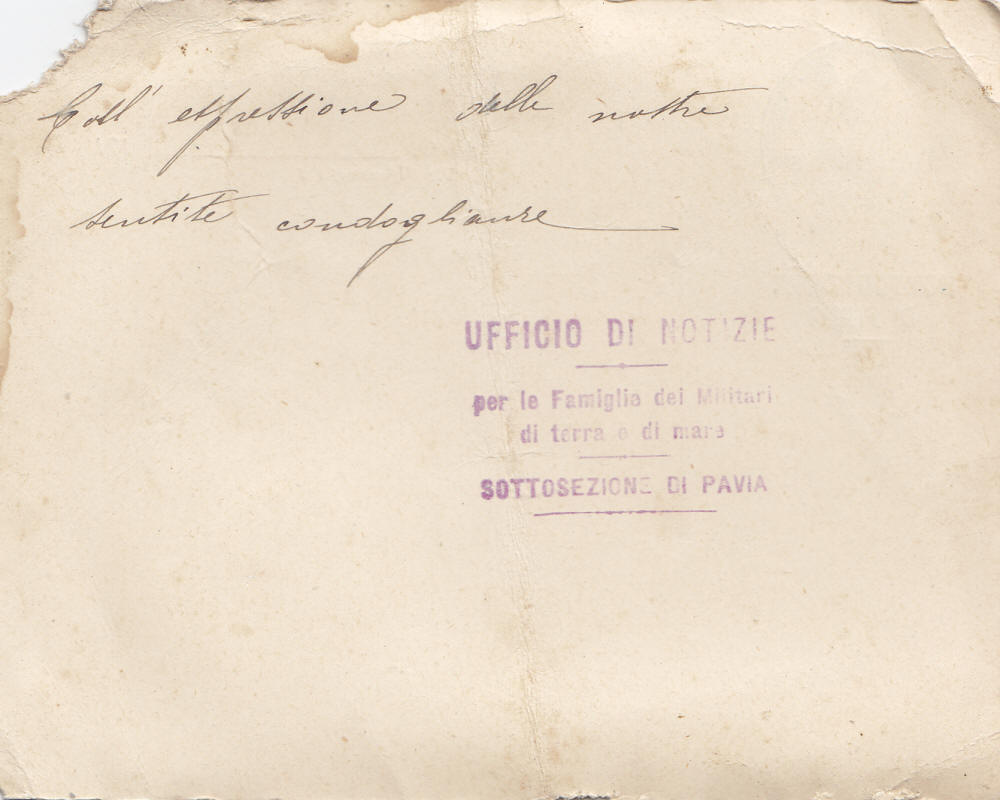 Coll' espressione delle nostre
sentite condoglianze
UFFICIO DI NOTIZIE
per le Famiglie dei Militari
di terra e di mare
SOTTOSEZIONE DI PAVIA